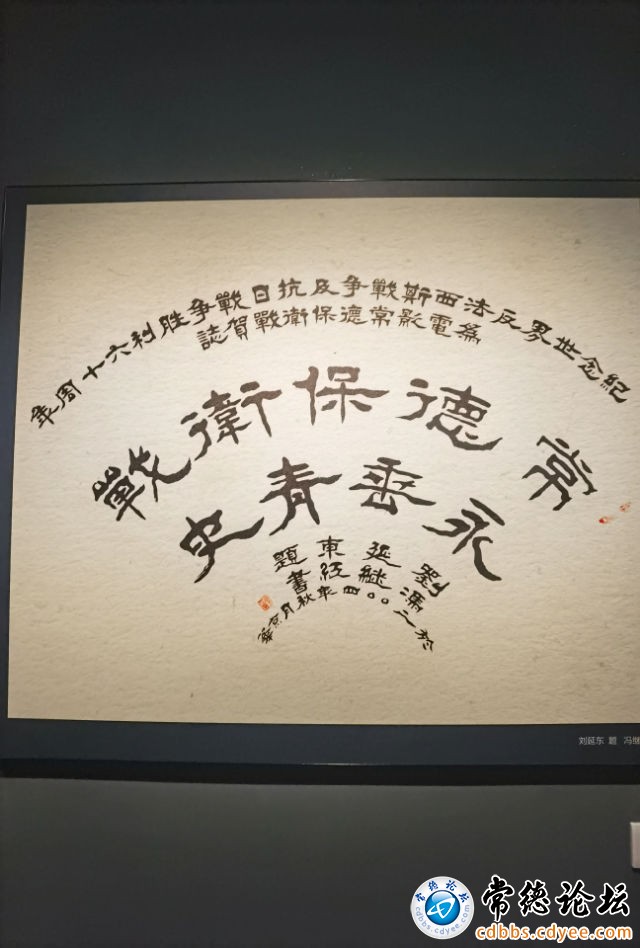 紀念世界反法西斯戰争及抗日戰争胜利六十周年
為電影常德保衛戰賀誌
常德保衛戰
永垂青史
劉延東題
馮継红書
於二〇〇四年秋月京華
刘延东 题 冯继
常德论坛
常德论坛
cdbbs.cdyee.com
cdbbs.cdyee.com